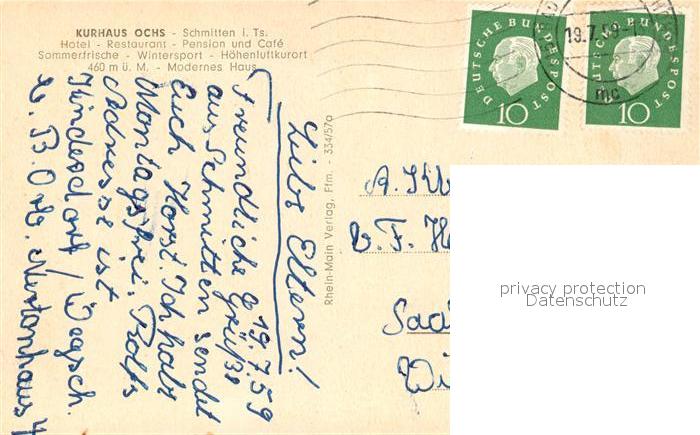 KURHAUS OCHS - Schmitten i. Ts.
Hotel - Restaurant - Pension und Café
Sommerfrische - Wintersport - Höhenluftkurort
460 m ü. M. - Modernes Haus
DEUTSCHE BUNDESPOST
10
DEUTSCHE BUNDESPOST
10
19.7.59
mc
19.7.59
Liebe Eltern!
Freundliche Grüße
aus Schmitten sendet
Euch Horst. Ich habe
Montags frei. Rolfs
Adresse ist
Rhein-Main Verlag, Ffm. - 334/57a
A.
V. F.
Saa
Wi
privacy protection
Datenschutz